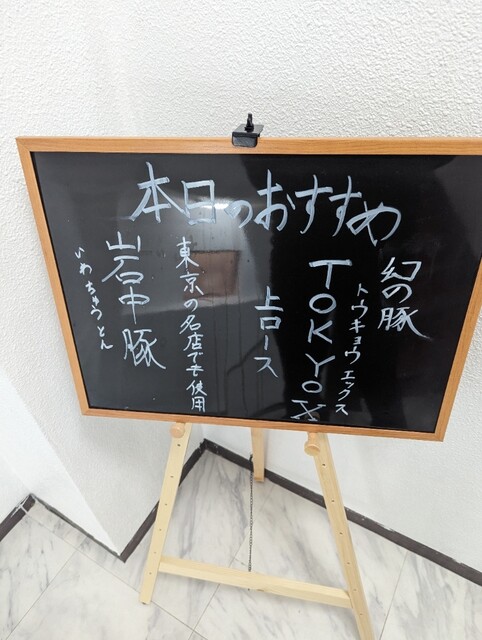 本日のおすすめ
幻の豚
トウキョウエックス
TOKYOX
上ロース
東京の名店でも使用
岩中豚
いわちゅうとん